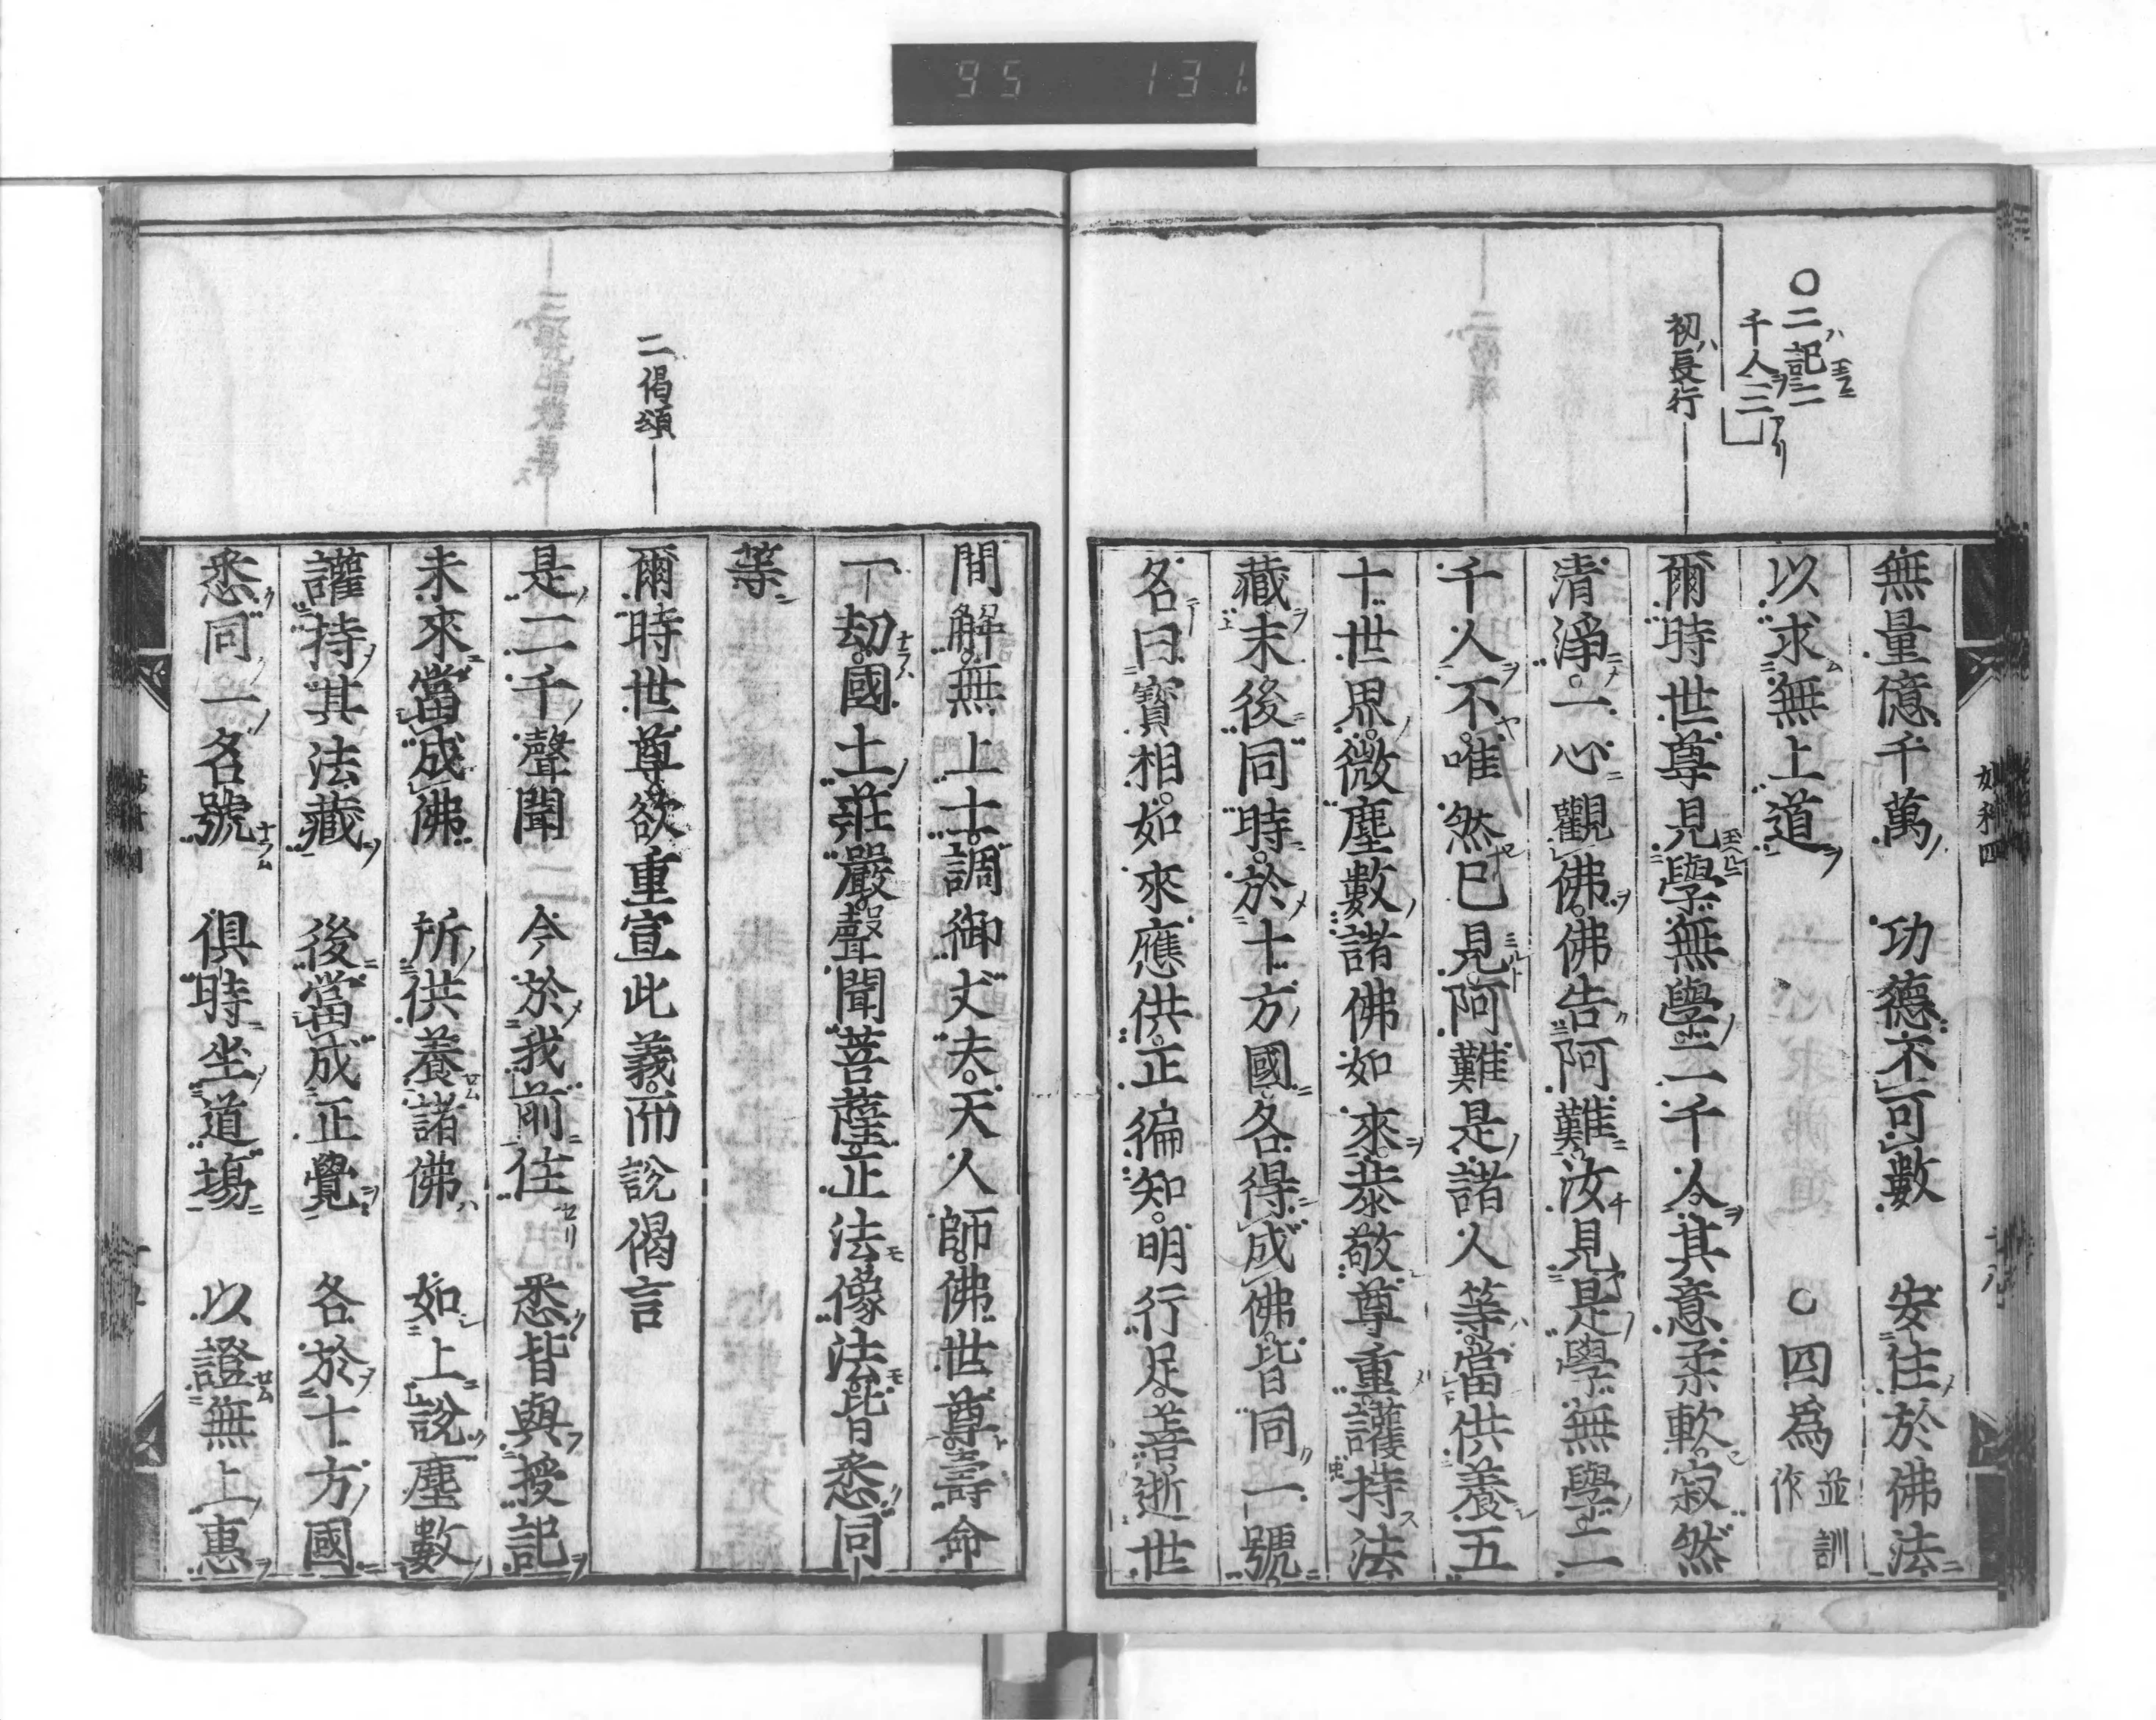 95 131
○二記二
千人三
初長行
無量億千萬 功德不可數 安住於佛法
以求無上道 ○四爲並訓作
爾時世尊見學無學二千人其意柔軟寂然
清淨一心觀佛佛告阿難汝見是學無學二
千人不唯然已見阿難是諸人等當供養五
十世界微塵數諸佛如來恭敬尊重護持法
藏末後同時於十方國各得成佛皆同一號
名曰寶相如來應供正徧知明行足善逝世
二偈頌
間解無上士調御丈夫天人師佛世尊壽命
一劫國土莊嚴聲聞菩薩正法像法皆悉同
等
爾時世尊欲重宣此義而說偈言
是二千聲聞 今於我前住 悉皆與授記
未來當成佛 所供養諸佛 如上說塵數
護持其法藏 後當成正覺 各於十方國
悉同一名號 俱時坐道場 以證無上惠